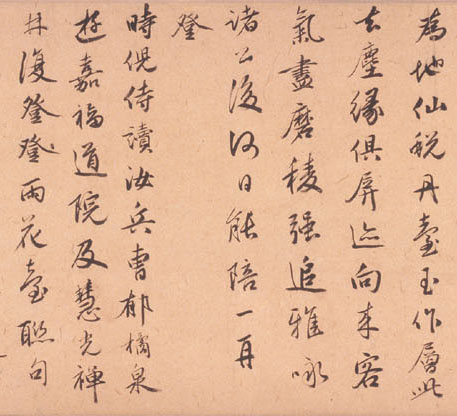 為地仙蛻丹臺玉作層此
去塵緣俱屏迹向来客
氣盡磨稜强追雅咏
諸公後何日能陪一再
登
時倪侍讀汝兵曹郁橘泉
遊嘉福道院及慧光禪
林復登登雨花臺聯句